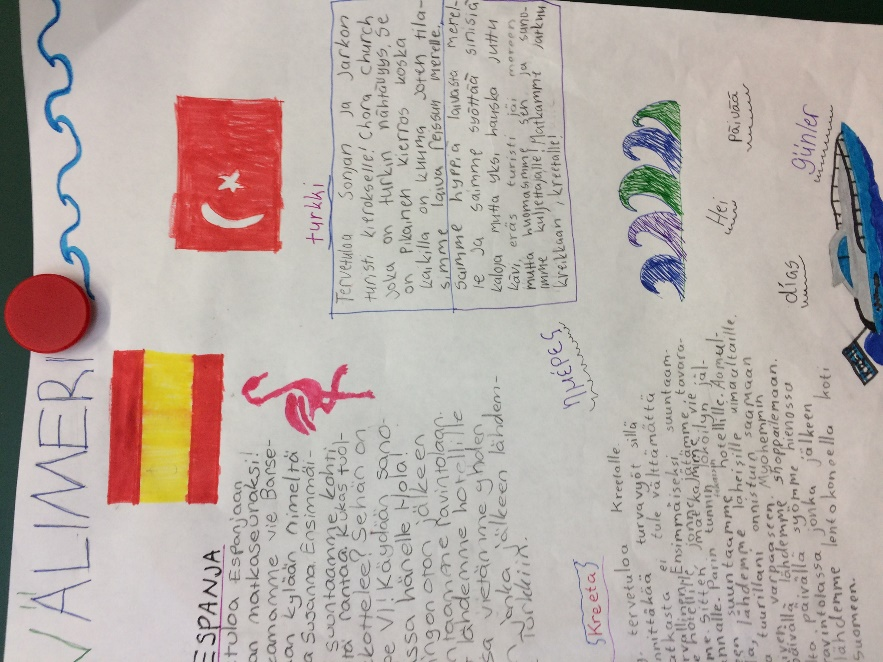 VÄLIMERI
ESPANJA
tuloa Espanjaan
an matkaseuraksi!
amamme vie Barse-
an kylään nimeltä
a Susanna. Ensimmäi-
suuntaamme kohti
tä rantaa. Kukas tuol-
kottelee? Sehän on
be VII. Käydään sano-
ssa hänelle Hola!
ingon oton jälkeen
ntaamme ravintolaan.
lähdemme hotellille
sa vietämme yhden
n jonka jälkeen lähdem-
Turkkiin.
turkki
Tervetuloa Sonjan ja Jarkon
turisti kierokselle! Chora Church
joka on turkin nähtävyys. Se
on Pikainen kierros koska
kaikilla on kuuma joten tila-
simme laiva reissun merelle.
Saimme hyppiä laivasta merel-
le ja saimme syöttää sinisiä
kaloja mutta yksi hauska juttu
kävi, eräs turisti jäi mereen
mutta huomasimme sen ja sano-
imme kuljettajalle! Matkamme jatkuu
kreikkaan, kreetalle!
ημέρες
Hei
Päivää
días
günler
Kreeta
tervetuloa Kreetalle.
nnittäkää turvavyöt sillä
atkasta ei tule välttämättä
rvallinen. Ensimmäiseksi suuntaam-
e hotellille jonne jätämme tavara-
me. Sitten matkamme vie jäl-
nnalle. Parin tunnin lokoilyn
suuntaamme hotellille. Aamul-
en lähdemme läheisille uimaaltaille.
tuurillani onnistuin saamaan
n varpaaseen. Myöhemmin
äivällä lähdemme shoppailemaan.
ta päivällä syömme hienossa
avintolassa jonka jälkeen
ähdemme lentokoneella koti
Suomeen.